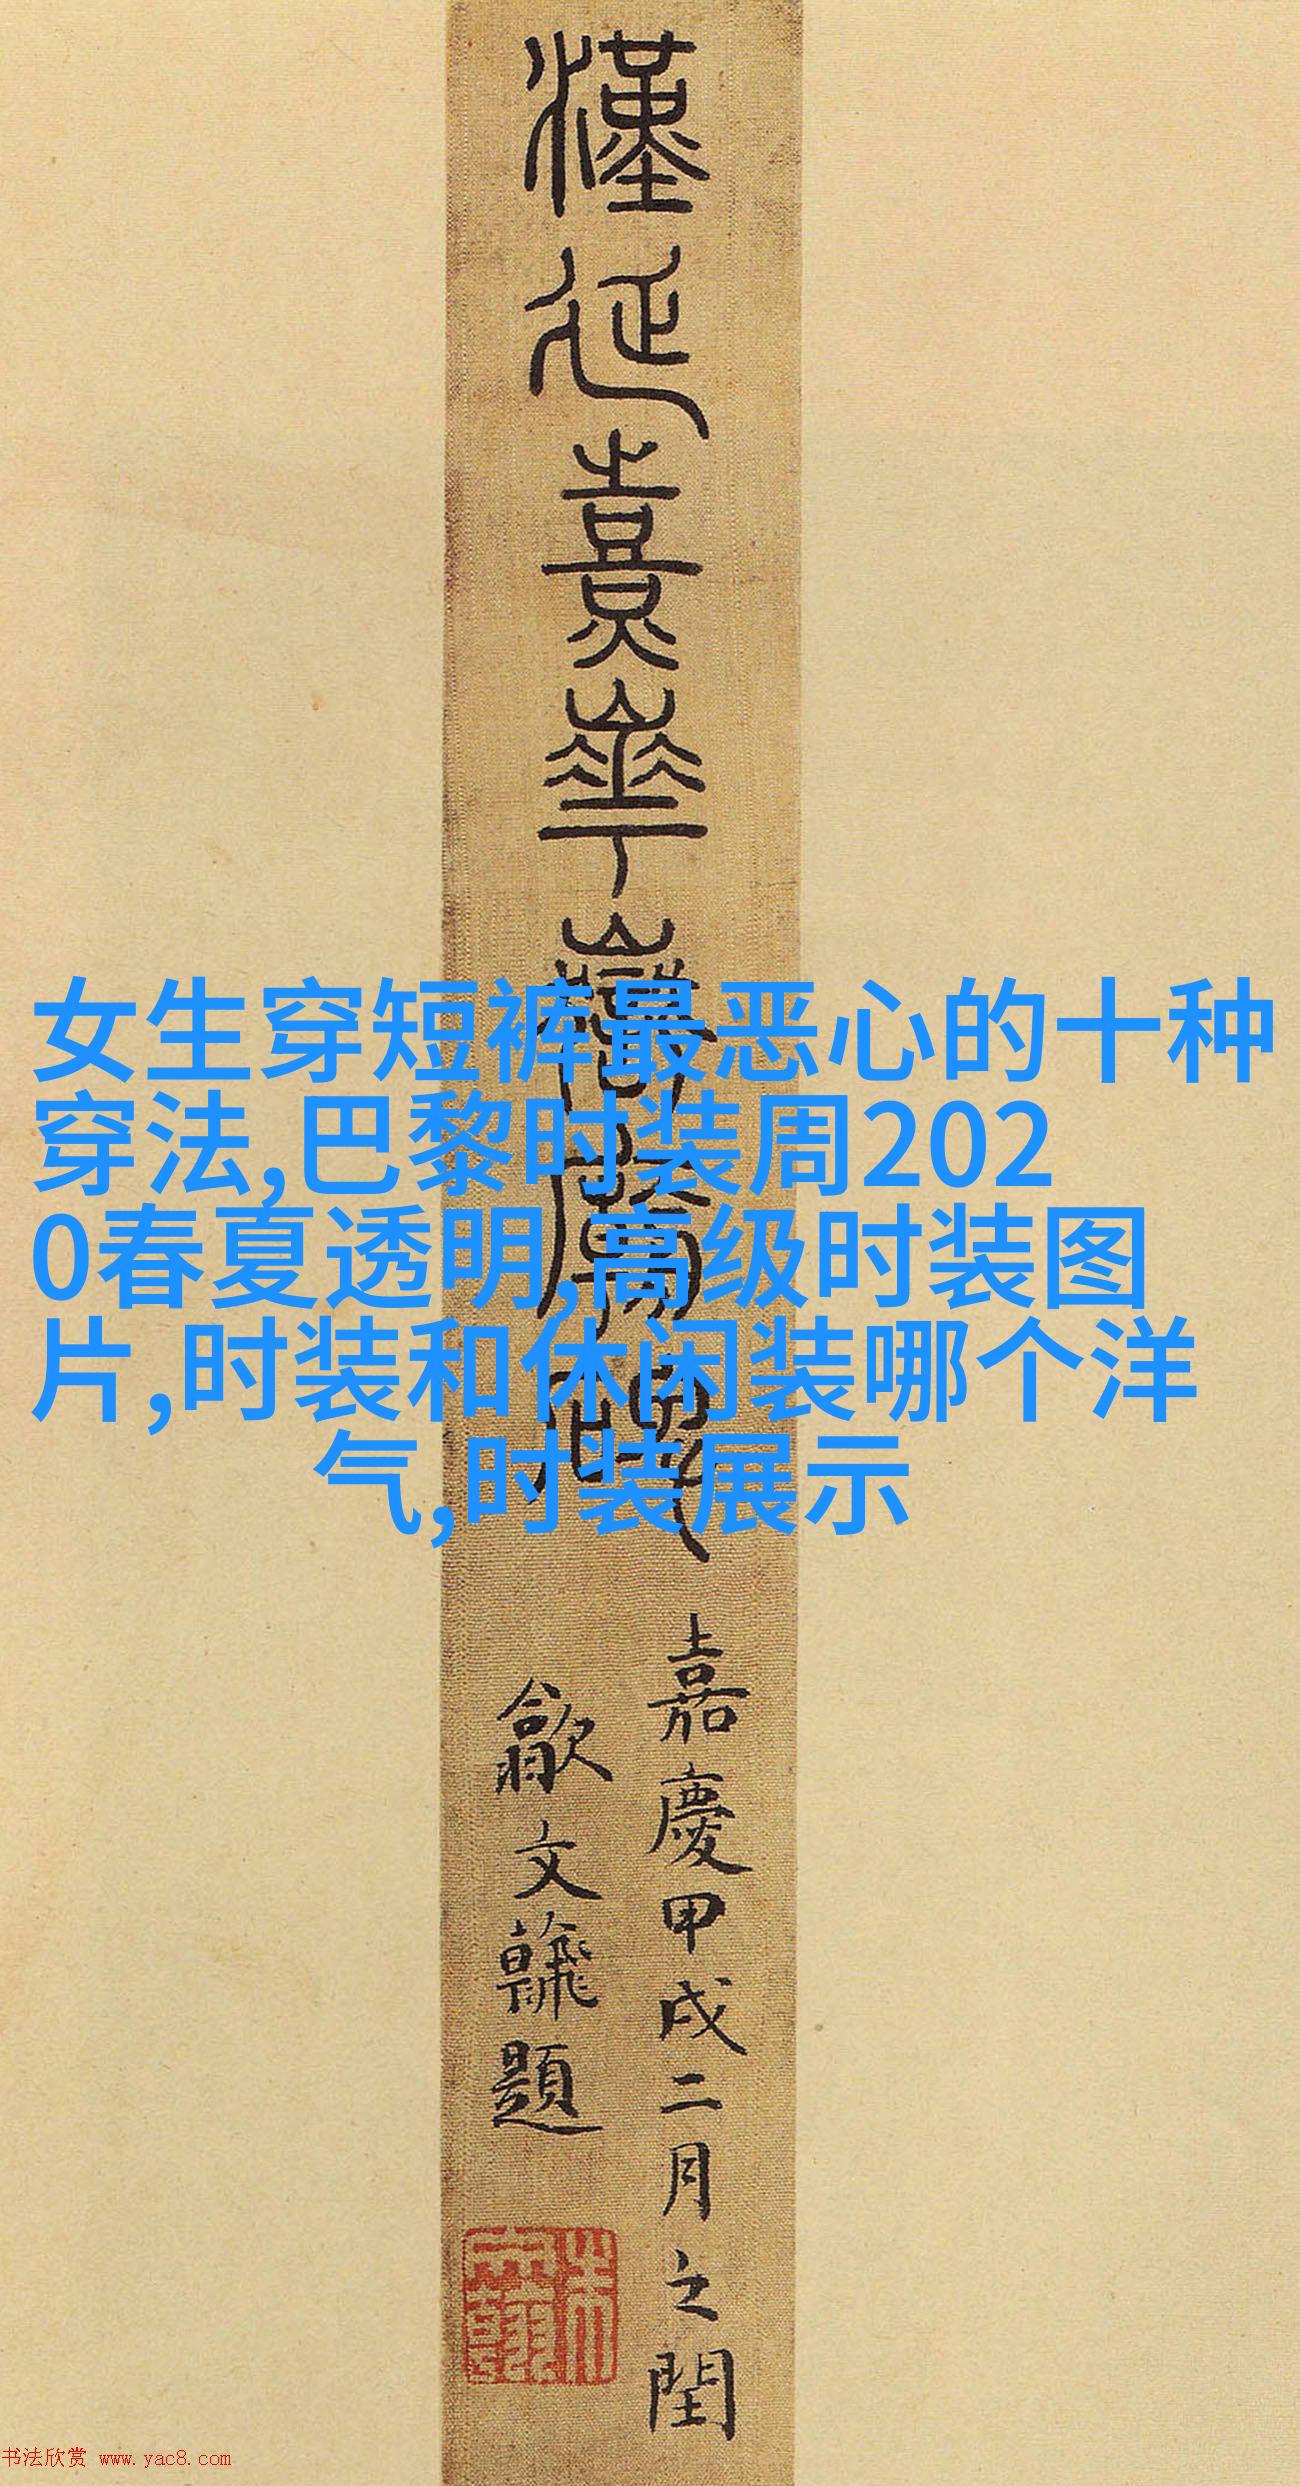 漢延熹華嶽廟碑
嘉慶甲戌二月之閏
歙文翰題
女生穿短裤最恶心的十种
穿法,巴黎时装周202
0春夏透明,高级时装图
片,时装和休闲装哪个洋
气,时装展示
书法欣赏 www.yac8.com